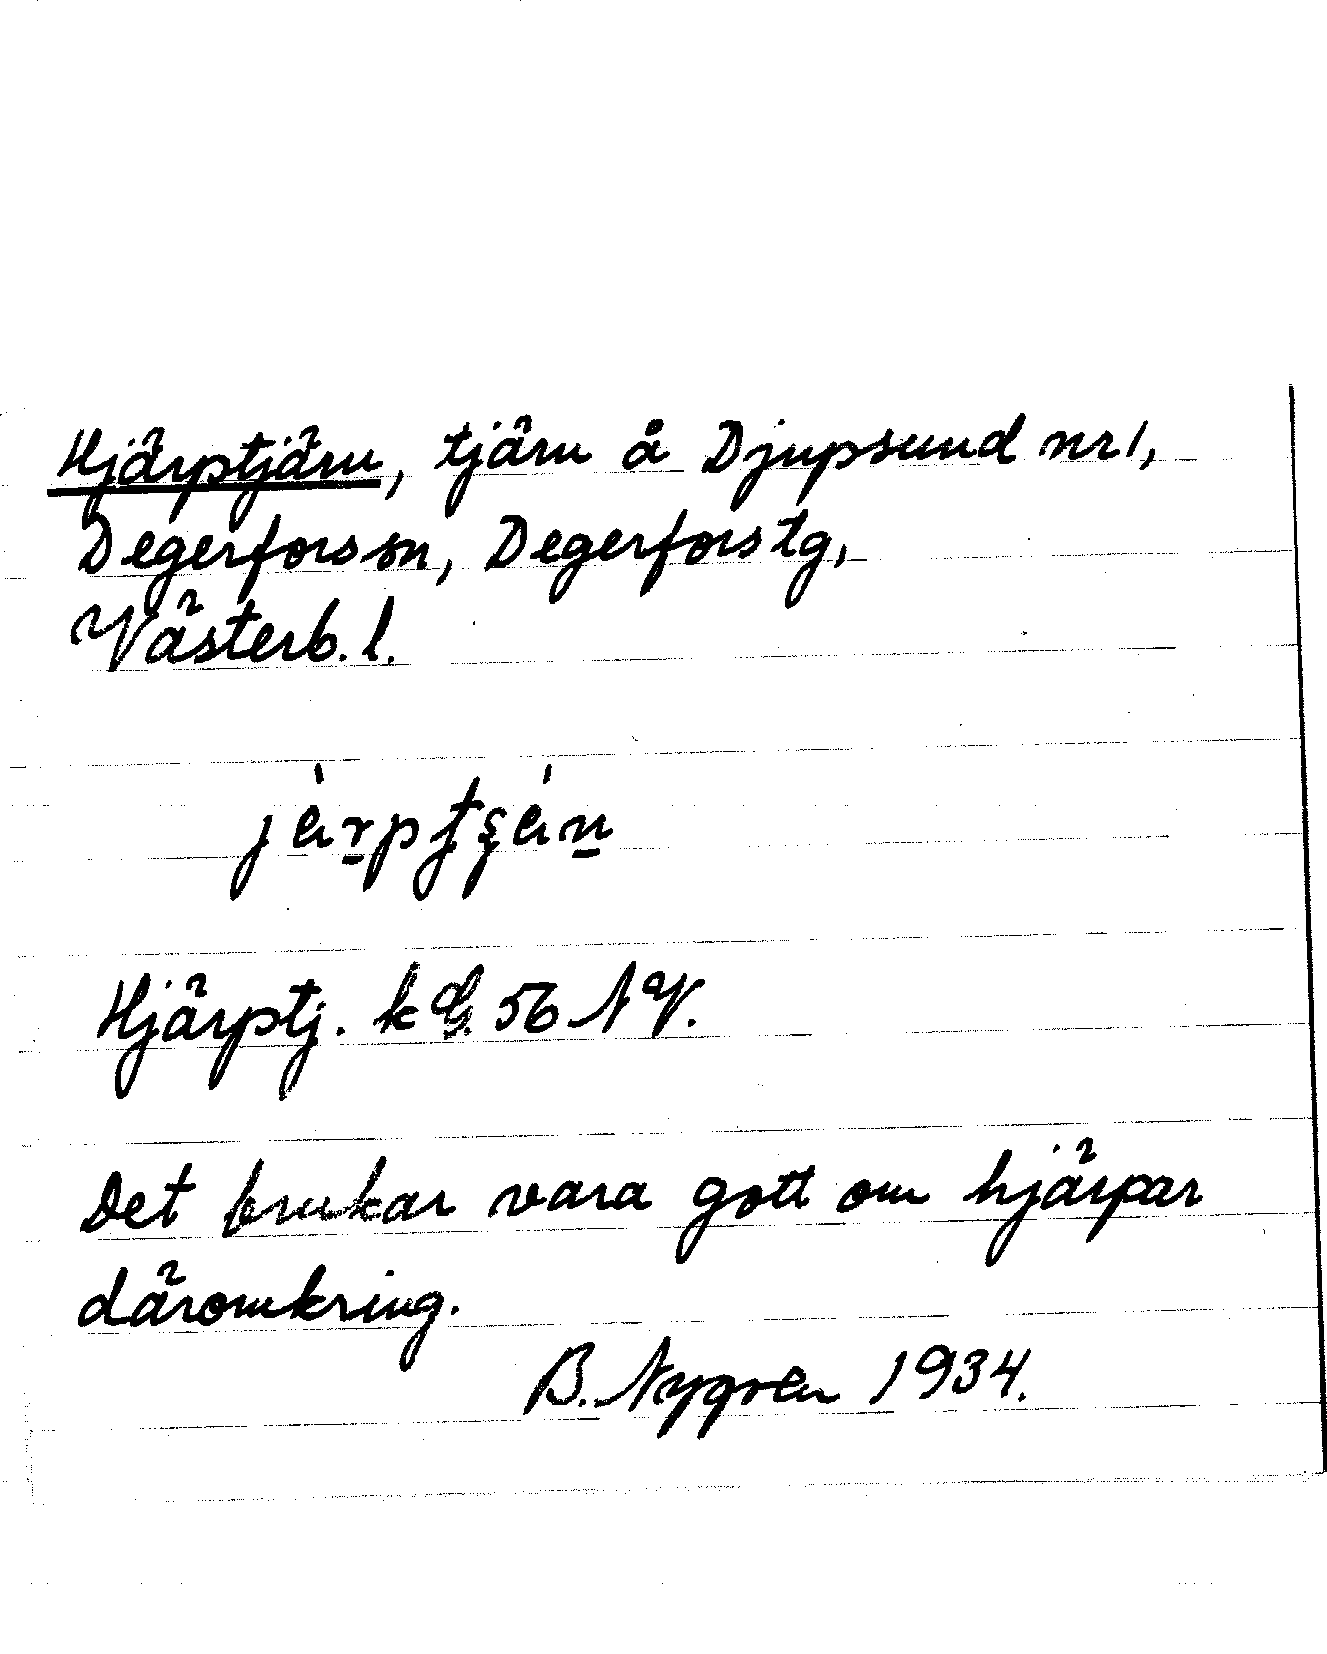 Hjärptjärn, tjärn å Djupsund nr 1,
Degerfors sn, Degerfors tg,
Västerb. l.
Hjärptj. k G. 56 NV.
Det brukar vara gott om hjärpar
däromkring.
B. Nygren 1934.